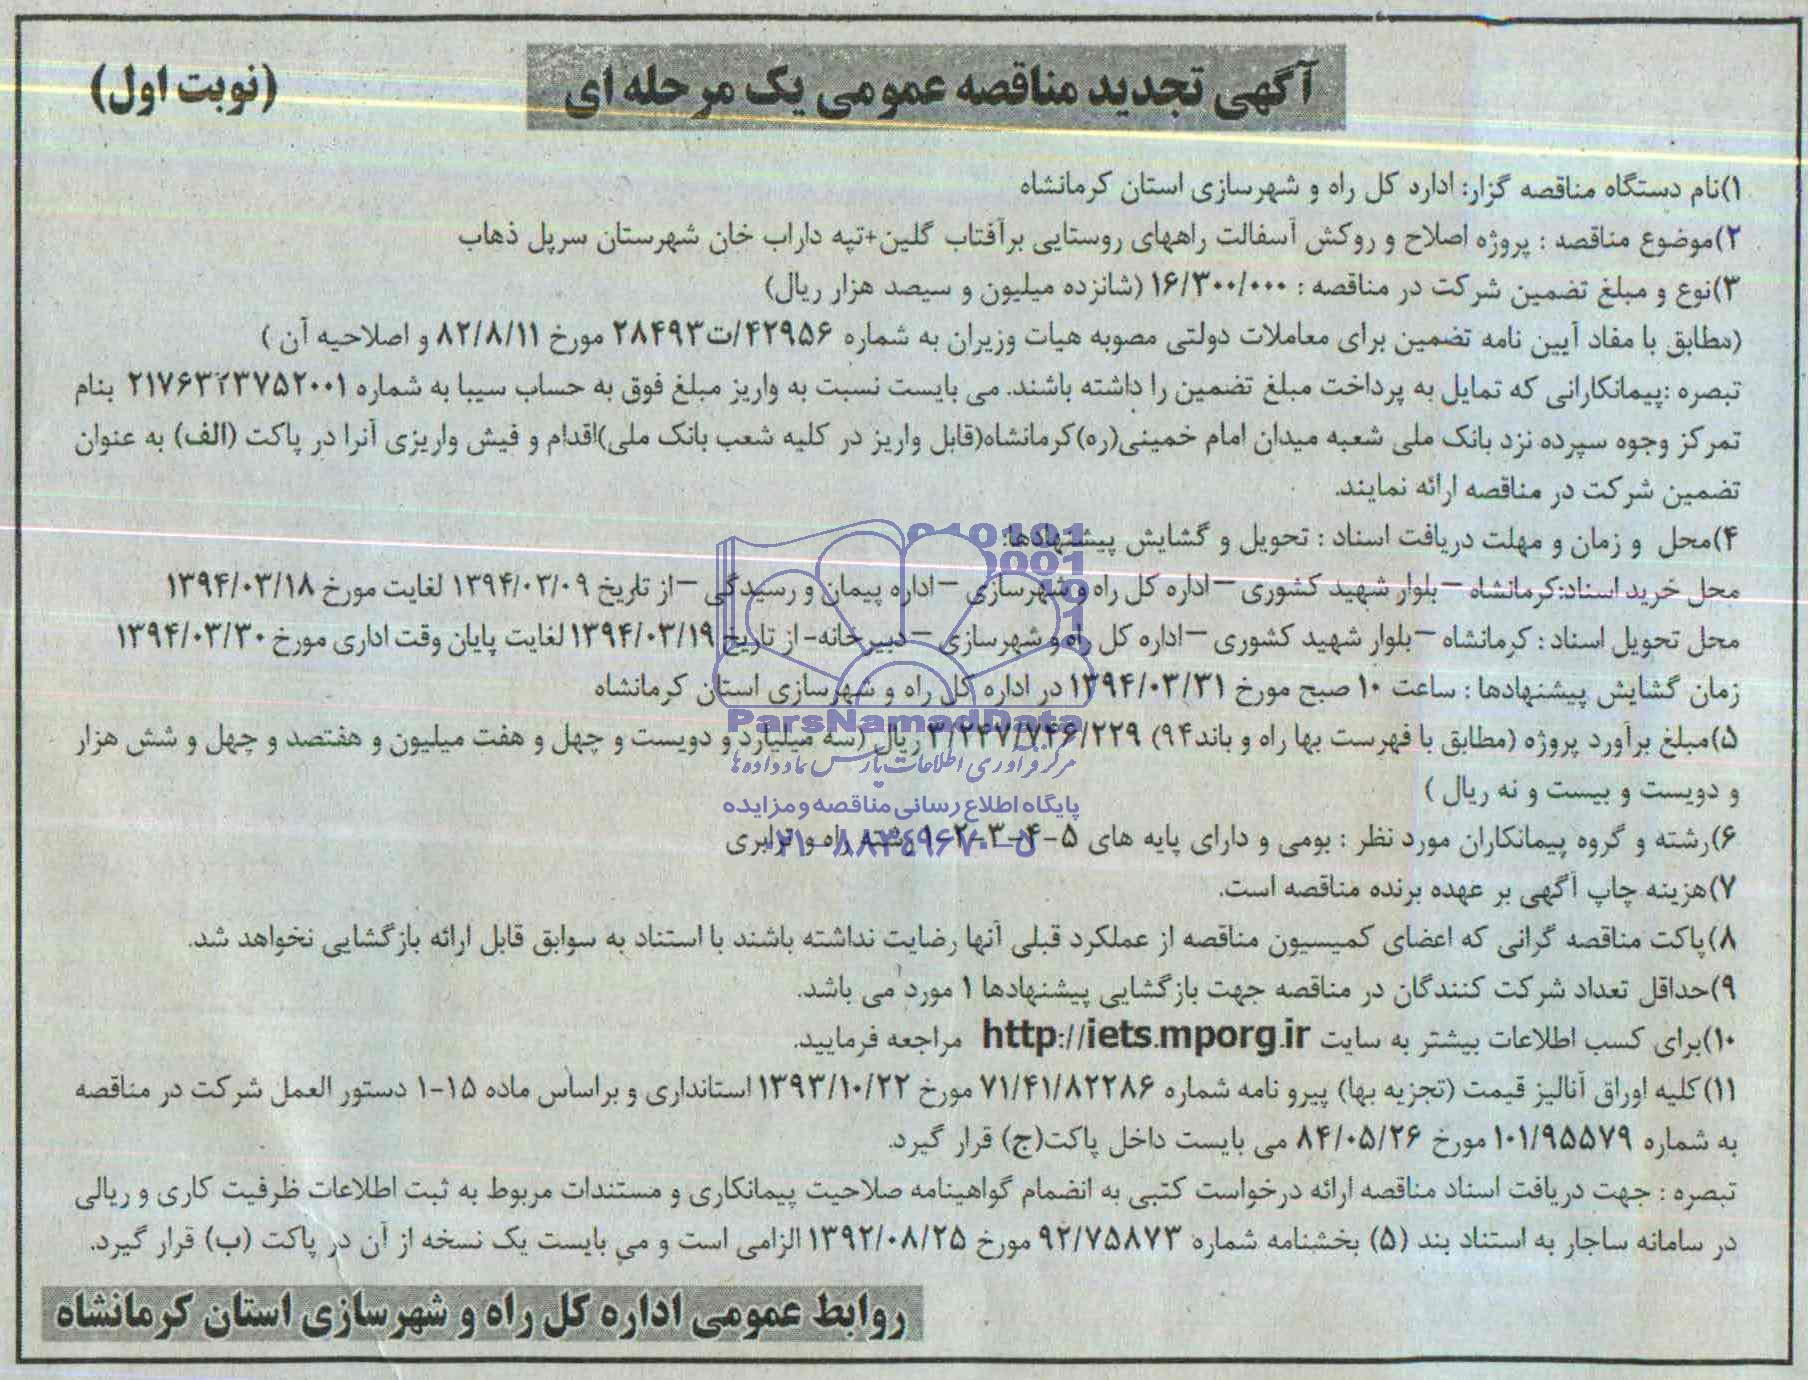 آگهی تجدید مناقصه عمومی یک مرحله ای
(نوبت اول)
۱)نام دستگاه مناقصه گزار: اداره کل راه و شهرسازی استان کرمانشاه
۲)موضوع مناقصه : پروژه اصلاح و روکش آسفالت راههای روستایی برآفتاب گلین+تپه داراب خان شهرستان سرپل ذهاب
۳)نوع و مبلغ تضمین شرکت در مناقصه : ۱۶/۳۰۰/۰۰۰ (شانزده میلیون و سیصد هزار ریال)
(مطابق با مفاد آیین نامه تضمین برای معاملات دولتی مصوبه هیات وزیران به شماره ۴۲۹۵۶/ت۲۸۴۹۳ مورخ ۸۲/۸/۱۱ و اصلاحیه آن )
تبصره :پیمانکارانی که تمایل به پرداخت مبلغ تضمین را داشته باشند. می بایست نسبت به واریز مبلغ فوق به حساب سیبا به شماره ۲۱۷۶۳۲۳۷۵۲۰۰۱ بنام
تمرکز وجوه سپرده نزد بانک ملی شعبه میدان امام خمینی(ره)کرمانشاه(قابل واریز در کلیه شعب بانک ملی)اقدام و فیش واریزی آنرا در پاکت (الف) به عنوان
تضمین شرکت در مناقصه ارائه نمایند.
۴)محل و زمان و مهلت دریافت اسناد : تحویل و گشایش پیشنهادها:
محل خرید اسناد:کرمانشاه – بلوار شهید کشوری – اداره کل راه و شهرسازی – اداره پیمان و رسیدگی – از تاریخ ۱۳۹۴/۰۳/۰۹ لغایت مورخ ۱۳۹۴/۰۳/۱۸
محل تحویل اسناد : کرمانشاه – بلوار شهید کشوری – اداره کل راه و شهرسازی – دبیرخانه- از تاریخ ۱۳۹۴/۰۳/۱۹ لغایت پایان وقت اداری مورخ ۱۳۹۴/۰۳/۳۰
زمان گشایش پیشنهادها : ساعت ۱۰ صبح مورخ ۱۳۹۴/۰۳/۳۱ در اداره کل راه و شهرسازی استان کرمانشاه
ParsNamadData
۵)مبلغ برآورد پروژه (مطابق با فهرست بها راه و باند۹۴) ۳/۲۴۷/۷۴۶/۲۲۹ ریال (سه میلیارد و دویست و چهل و هفت میلیون و هفتصد و چهل و شش هزار
مرکز فرآوری اطلاعات پارس نماد داده ها
و دویست و بیست و نه ریال )
پایگاه اطلاع رسانی مناقصه و مزایده
۶)رشته و گروه پیمانکاران مورد نظر : بومی و دارای پایه های ۵-۴-۳-۲-۱ رشته راه و ترابری
۰۲۱-۸۸۳۴۹۶۷۰-۵
۷)هزینه چاپ آگهی بر عهده برنده مناقصه است.
۸)پاکت مناقصه گرانی که اعضای کمیسیون مناقصه از عملکرد قبلی آنها رضایت نداشته باشند با استناد به سوابق قابل ارائه بازگشایی نخواهد شد.
۹)حداقل تعداد شرکت کنندگان در مناقصه جهت بازگشایی پیشنهادها ۱ مورد می باشد.
۱۰)برای کسب اطلاعات بیشتر به سایت http://iets.mporg.ir مراجعه فرمایید.
۱۱)کلیه اوراق آنالیز قیمت (تجزیه بها) پیرو نامه شماره ۷۱/۴۱/۸۲۲۸۶ مورخ ۱۳۹۳/۱۰/۲۲ استانداری و براساس ماده ۱۵-۱ دستور العمل شرکت در مناقصه
به شماره ۱۰۱/۹۵۵۷۹ مورخ ۸۴/۰۵/۲۶ می بایست داخل پاکت(ج) قرار گیرد.
تبصره : جهت دریافت اسناد مناقصه ارائه درخواست کتبی به انضمام گواهینامه صلاحیت پیمانکاری و مستندات مربوط به ثبت اطلاعات ظرفیت کاری و ریالی
در سامانه ساجار به استناد بند (۵) بخشنامه شماره ۹۲/۷۵۸۷۳ مورخ ۱۳۹۲/۰۸/۲۵ الزامی است و می بایست یک نسخه از آن در پاکت (ب) قرار گیرد.
روابط عمومی اداره کل راه و شهرسازی استان کرمانشاه